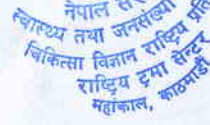 नेपाल
स्वास्थ्य तथा जनसंख्या
चिकित्सा विज्ञान राष्ट्रिय
राष्ट्रिय ट्रमा सेन्टर
महांकाल, काठमाडौं